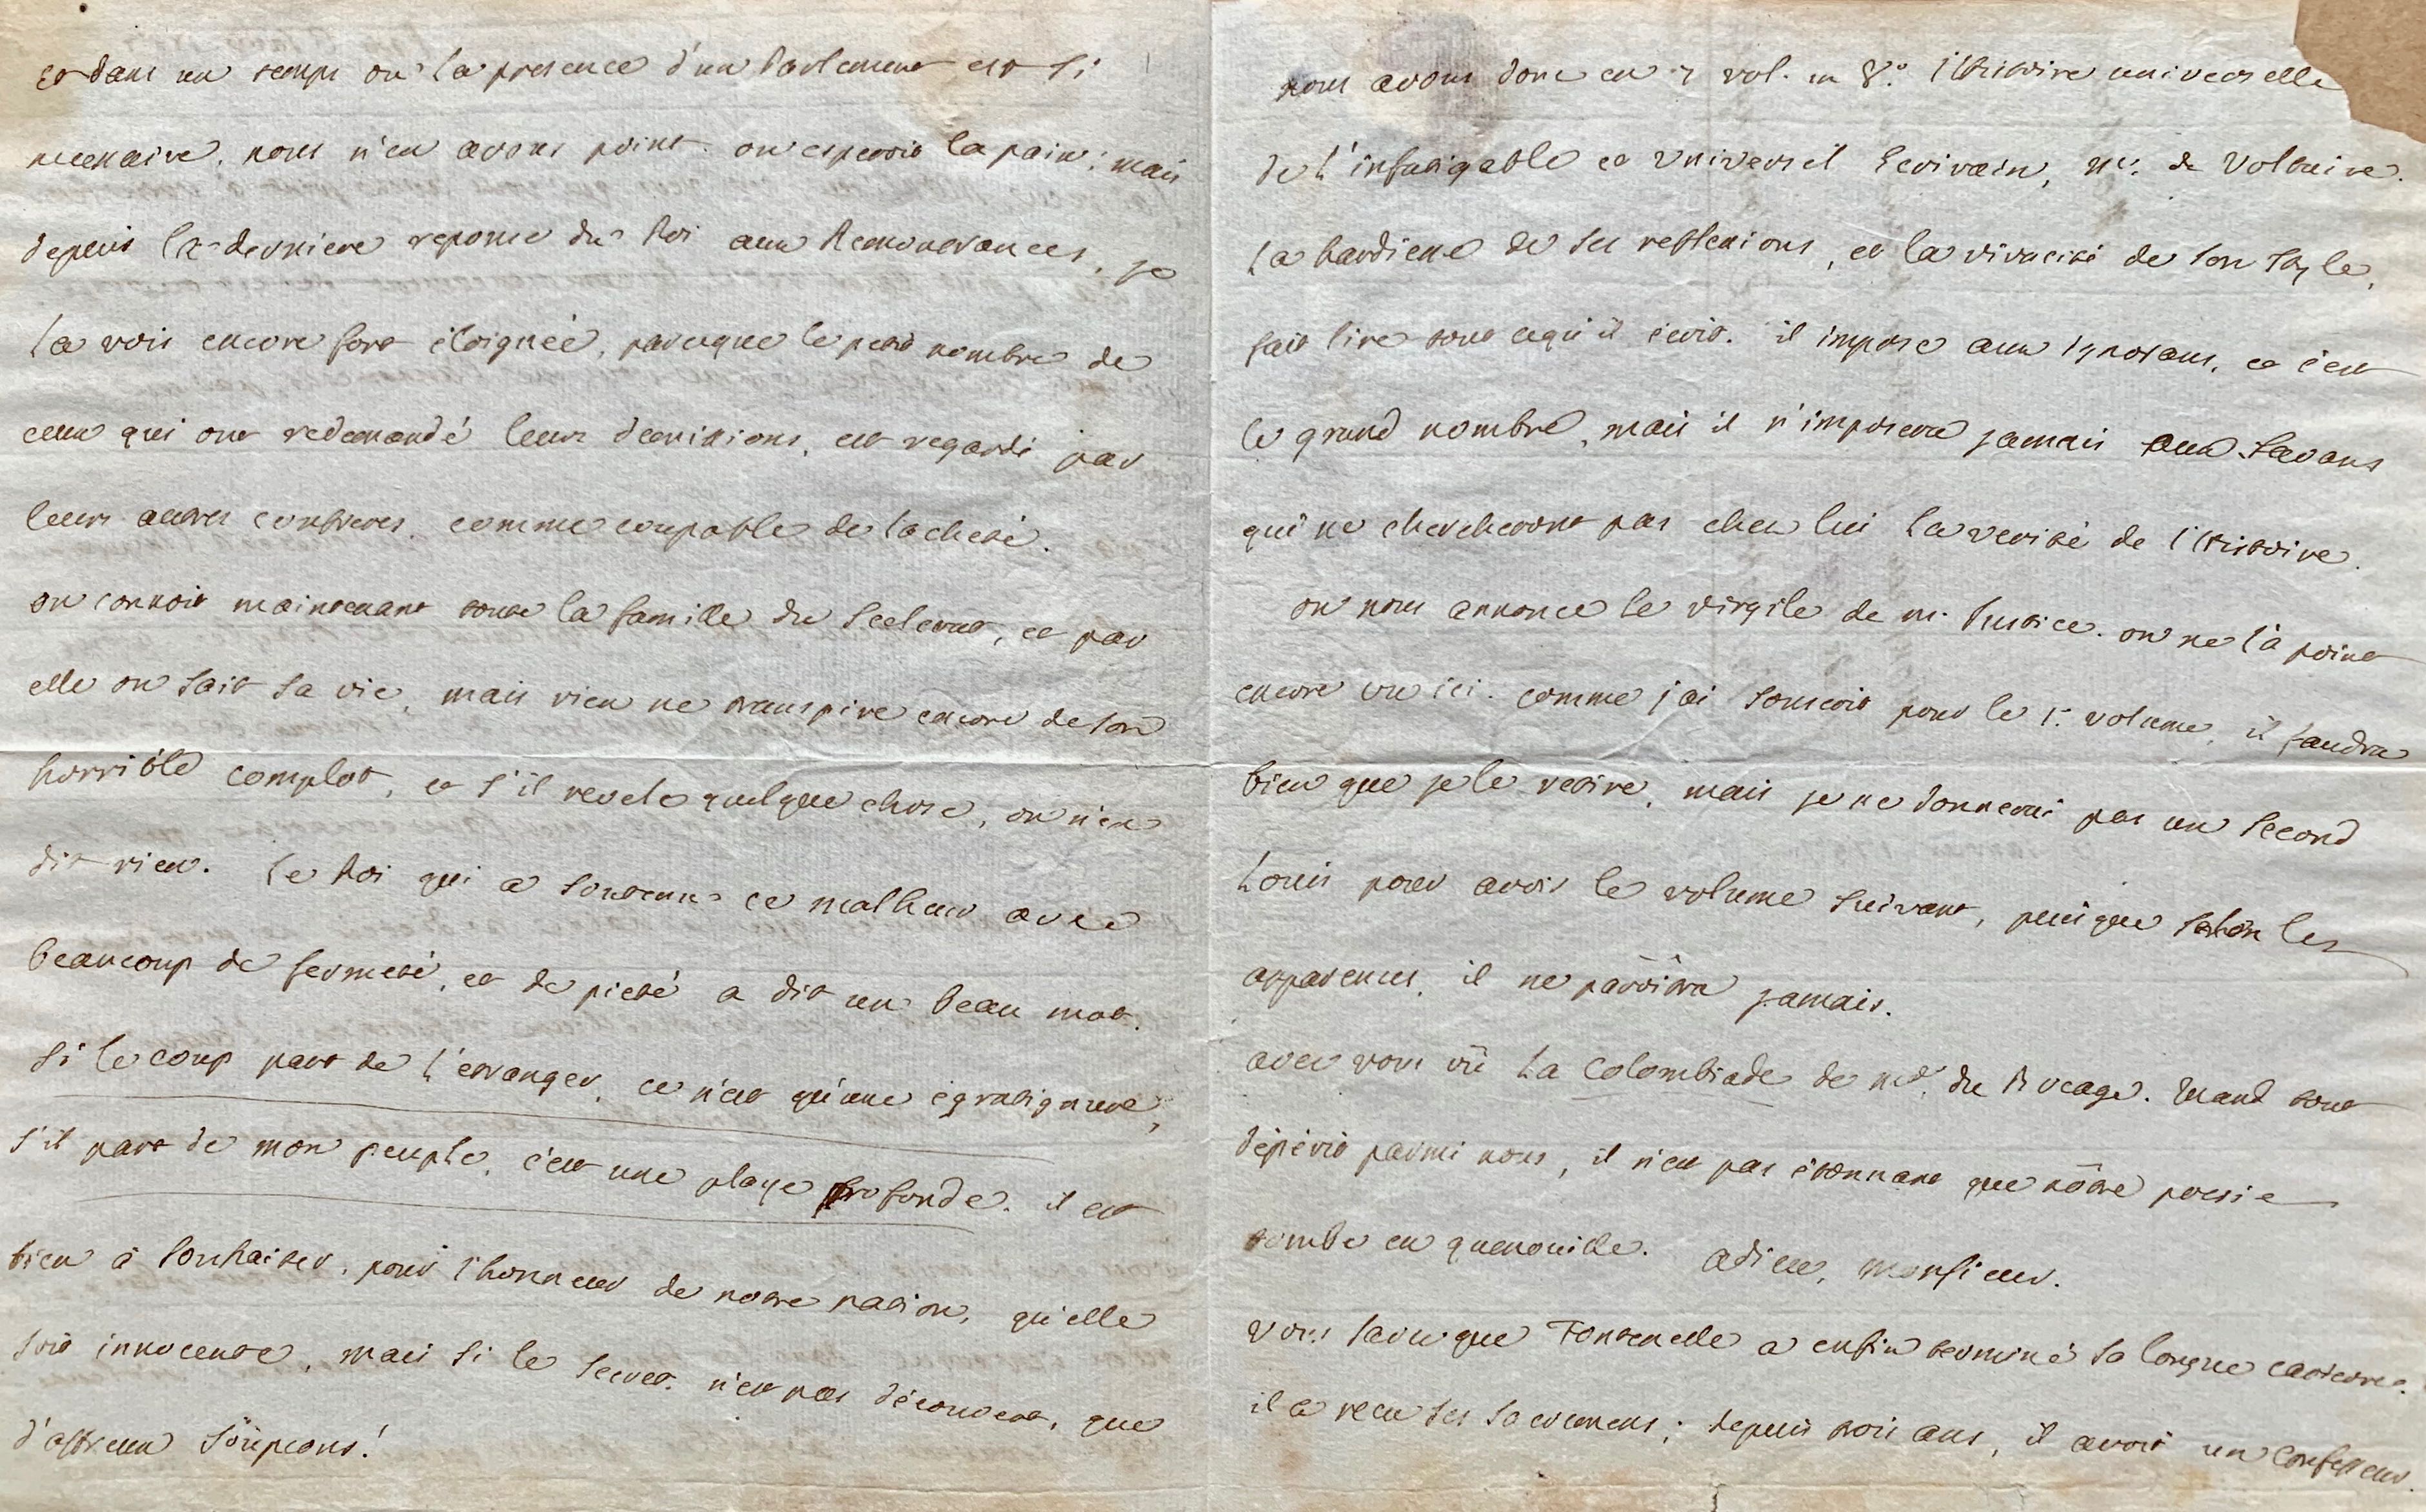 et dans un temps ou la presence d'un Parlement est si
necessaire, nous n'en avons point. on esperoit la paix: mais
depuis la derniere reponse du Roi aux Remontrances, je
la vois encore fort éloignée, parceque le petit nombre de
ceux qui ont redemandé leurs demissions, est regardé par
leurs autres confreres, comme coupable de lacheté.
on connoit maintenant toute la famille du Scelerat, et par
elle on sait sa vie, mais rien ne transpire encore de son
horrible complot, et s'il revele quelque chose, on n'en
dit rien. le Roi qui a soutenu ce malheur avec
beaucoup de fermeté, et de pieté a dit un beau mot.
si le coup part de l'etranger, ce n'est qu'une egratignure,
s'il part de mon peuple, c'est une playe profonde. il est
bien à souhaiter, pour l'honneur de notre nation, qu'elle
soit innocente, mais si le secret n'est pas découvert, que
d'affreux soûpcons!
nous avons donc en 7 vol. in 8.º l'histoire universelle
de l'infatigable et universel Ecrivain, Mr. de Voltaire.
la hardiesse de ses reflexions, et la vivacité de son style,
fait lire tout cequ'il écrit. il impose aux ignorans, et c'est
le grand nombre, mais il n'imposera jamais aux savans
qui ne chercheront pas chez lui la verité de l'histoire.
on nous annonce le virgile de m. Justice. on ne l'a point
encore vu ici. comme j'ai souscrit pour le 1.r volume, il faudra
bien que je le retire, mais je ne donnerai pas un second
Louis pour avoir le volume suivant, puisque selon les
apparences, il ne paroîtra jamais.
avez vous vû la Colombiade de Mde. du Bocage. quand tout
dépérit parmi nous, il n'est pas étonnant que nôtre poesie
tombe en quenouille. adieu, monsieur.
vous savez que Fontenelle a enfin terminé sa longue carriere.
il a recu ses sacremens; depuis trois ans, il avoit un confesseur.